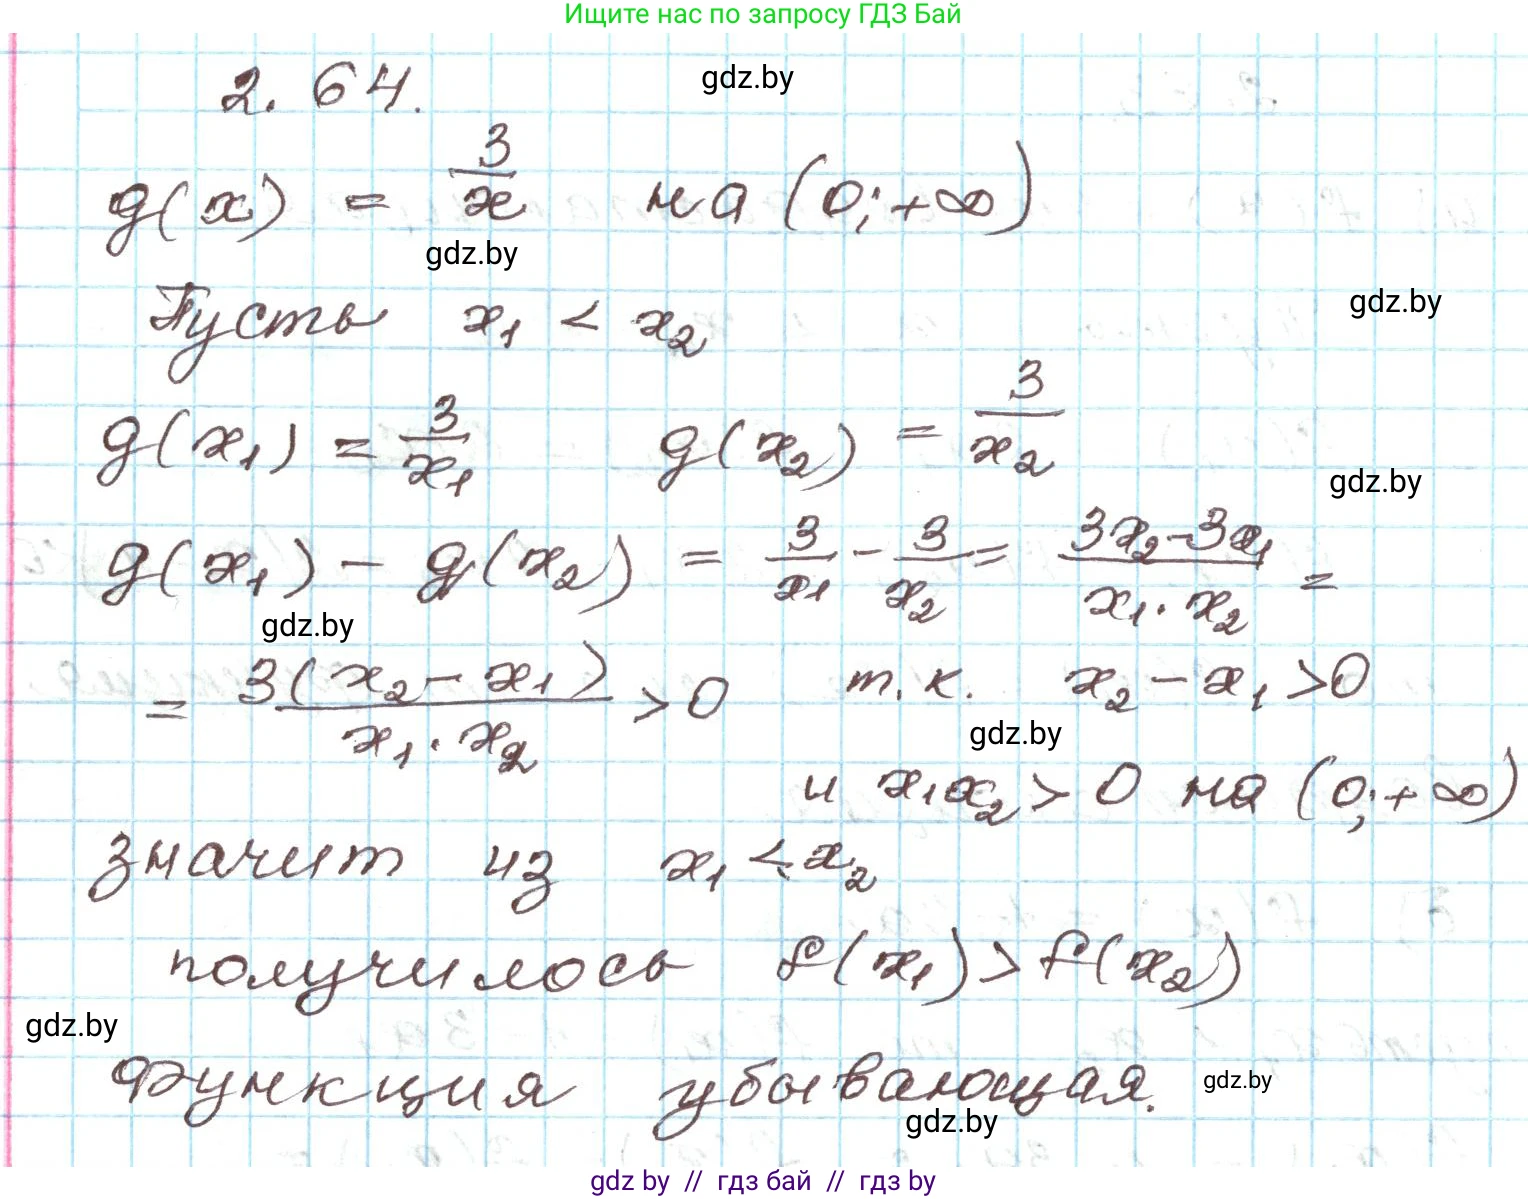 Ищите нас по запросу ГДЗ Бай
2.64.
gdz.by
g(x) = 3/x на (0; +∞)
gdz.by
gdz.by
Пусть x₁ < x₂
g(x₁) = 3/x₁ g(x₂) = 3/x₂
gdz.by
g(x₁) - g(x₂) = 3/x₁ - 3/x₂ = (3x₂-3x₁)/(x₁·x₂) =
gdz.by
= 3(x₂-x₁)/(x₁·x₂) > 0 т.к. x₂-x₁>0
gdz.by
и x₁x₂ > 0 на (0;+∞)
значит из x₁ < x₂
получилось f(x₁) > f(x₂)
gdz.by
функция убывающая.
gdz.by
gdz.by
gdz by // гдз бай // гдз by